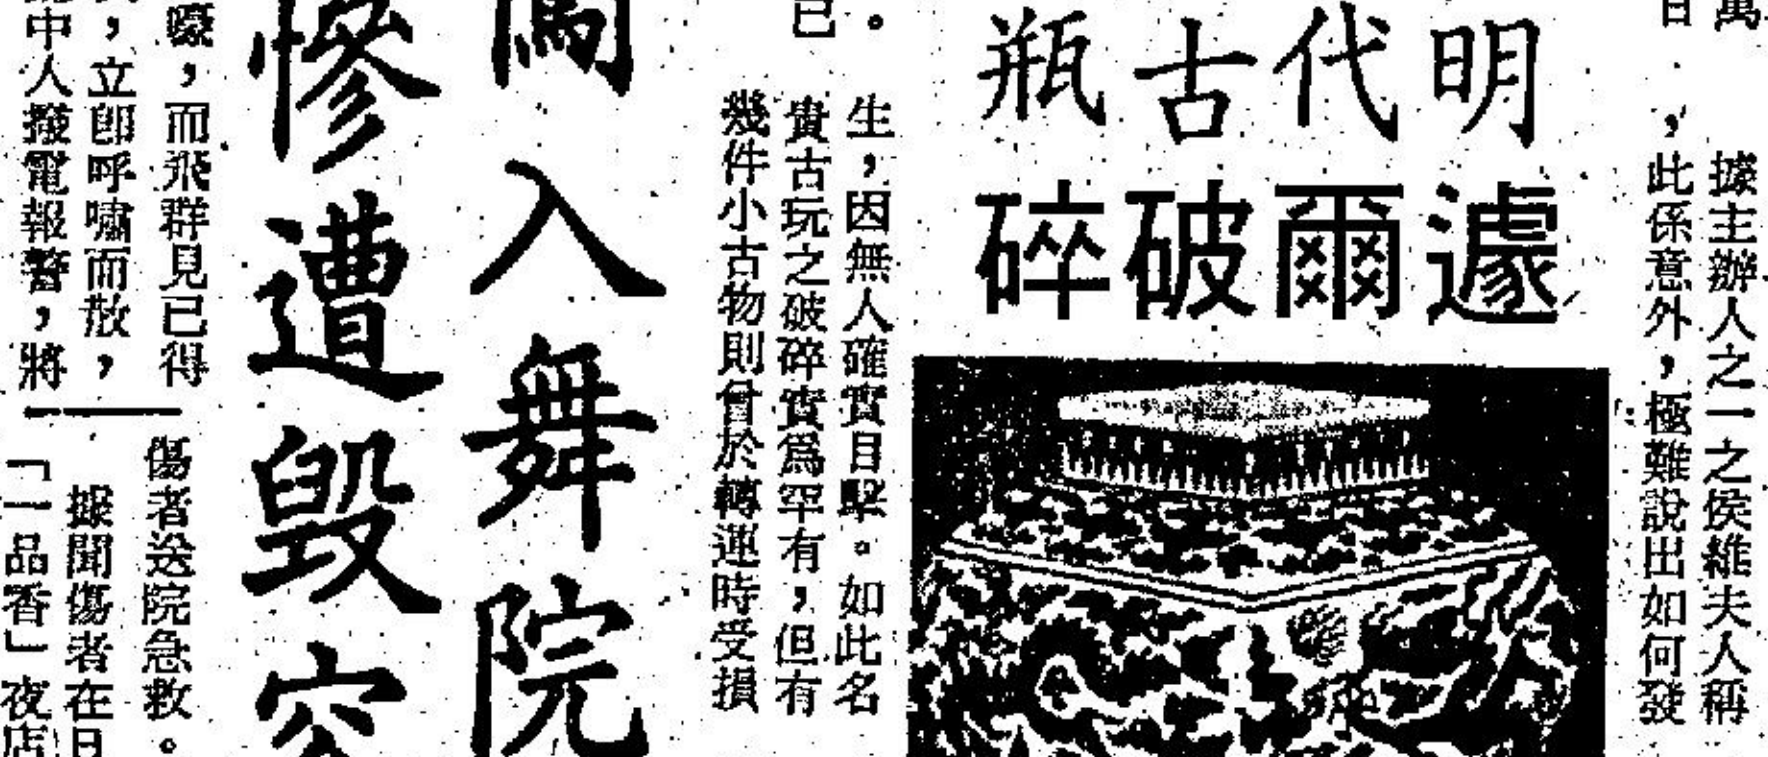 萬
據主辦人之一之侯維夫人稱
，此係意外，極難說出如何發
明代古瓶
遽爾破碎
生，因無人確實目擊。如此名
貴古玩之破碎實爲罕有，但有
幾件小古物則曾於轉運時受損
闖入舞院
慘遭毀容
嚎，而飛群見已得
，立卽呼嘯而散，
中人撥電報警，將
傷者送院急救。
據聞傷者在日
「一品香」夜店